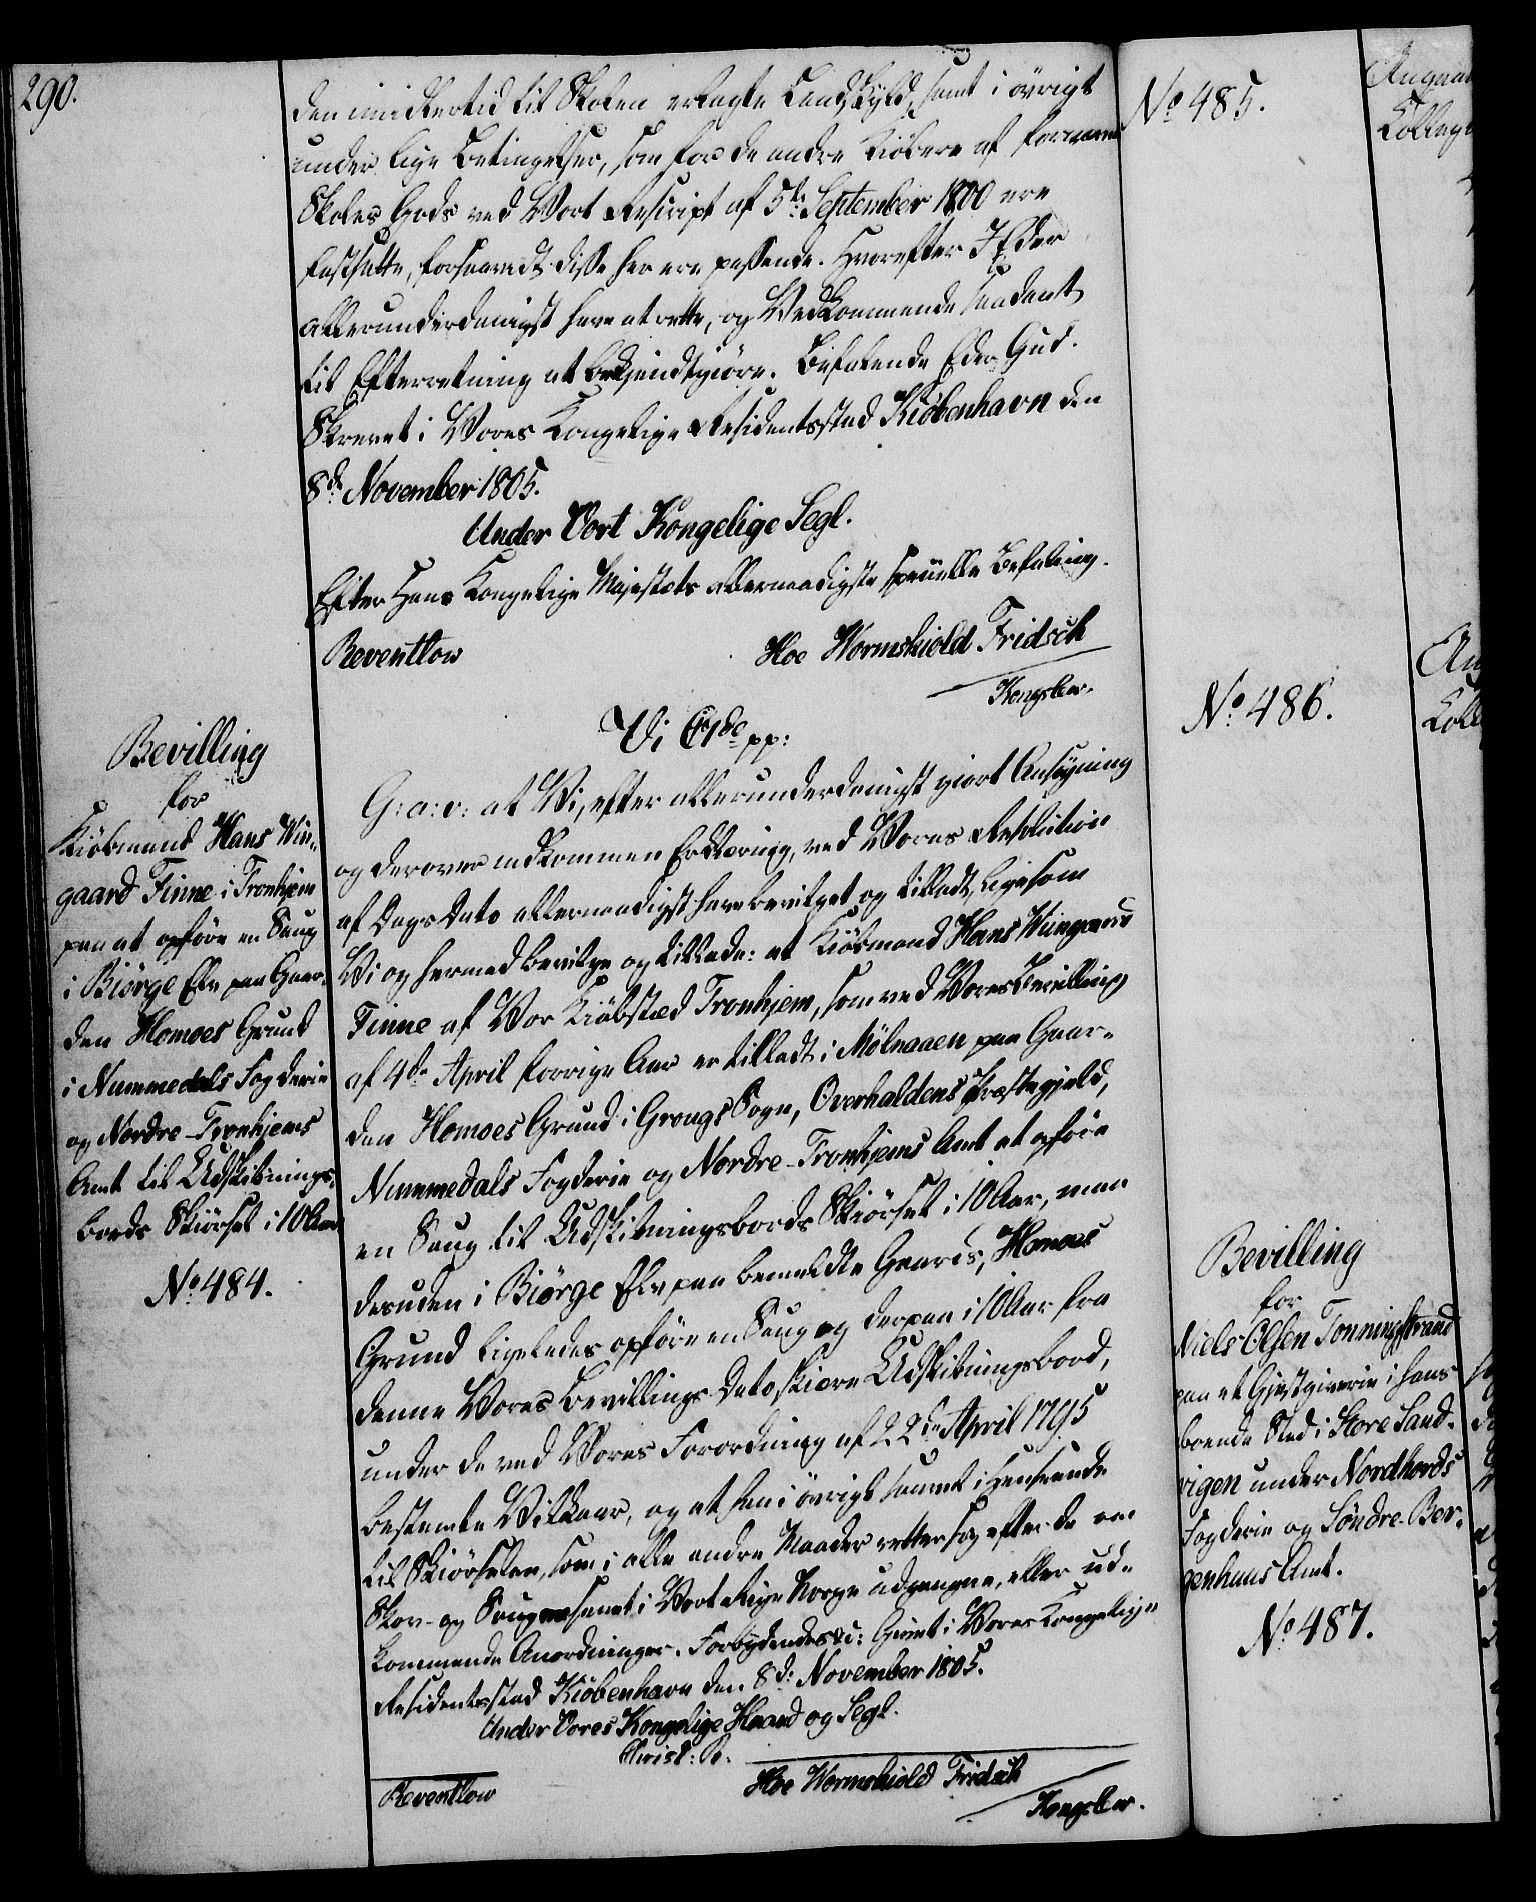 290.
den imidlertid til Skolen erlagte Landskyld, samt i øvrigt
under lige Betingelser, som for de andre Kiøbere af forrige
Skoles Gods ved Vort Rescript af 5te September 1800 ere
fastsatte, forsaavidt disse her ere passende. Hvorefter I Eder
allerunderdanigst have at rette, og Vedkommende saadant
til Efterretning at bekjendtgiøre. Befalende Eder Gud.
Skrevet i Vores Kongelige Residentsstad Kiöbenhavn den
8de November 1805.
Under Vort Kongelige Segl.
Efter Hans Kongelige Majestæts allernaadigste specielle Befaling.
Reventlow
Hoe Wormskiold Fridsch
Kongslew.
Bevilling
for
Kiøbmand Hans Win-
gaard Finne i Tronhjem
paa at opføre en Saug
i Biörge Elv paa Gaar-
den Homoes Grund
i Nummedals Fogderie
og Nordre-Tronhjems
Amt til Udskibnings-
bords Skiørsel i 10 Aar
No. 484.
Vi C7de pp:
G: a: v: at Vi, efter allerunderdanigst giort Ansøgning
og derover indkommen Erklæring, ved Vores Resolution
af Dags Dato allernaadigst have bevilget og tilladt, ligesom
Vi og hermed bevilge og tillade: at Kiøbmand Hans Wiingaard
Finne af Vor Kiøbstæd Tronhjem, som ved Vores Bevilling
af 4de April forrige Aar er tilladt i Mölnaaen paa Gaar-
den Homoes Grund i Grongs Sogn, Overhaldens Præstegjeld,
Nummedals Fogderie og Nordre-Tronhjems Amt at opføre
en Saug til Udskibningsbords Skiørsel i 10 Aar, maa
desuden i Biörge Elv paa bemeldte Gaards, Homoes
Grund ligeledes opføre en Saug og derpaa i 10 Aar fra
denne Vores Bevillings Dato skiære Udskibningsbord,
under de ved Vores Forordning af 22de April 1795
bestemte Vilkaar, og at han i øvrigt saavel i Henseende
til Skiørselen, som i alle andre Maader retter sig efter de om
Skov- og Saugvæsenet i Vort Rige Norge udgangne, eller ud-
kommende Anordninger. Forbydendes &c: Givet i Vores Kongelige
Residentsstad Kiöbenhavn den 8de November 1805.
Under Vores Kongelige Haand og Segl.
Christ: R.
Reventlow
Hoe Wormskiold Fridsch
Kongslew.
No. 485.
No. 486.
Bevilling
for
Niels Olsen Tonningstrand
paa et Gjæstgiverie i hans
boende Sted i Store Sand-
vigen under Nordhords
Fogderie og Söndre-Ber-
genhuus Amt.
No. 487.